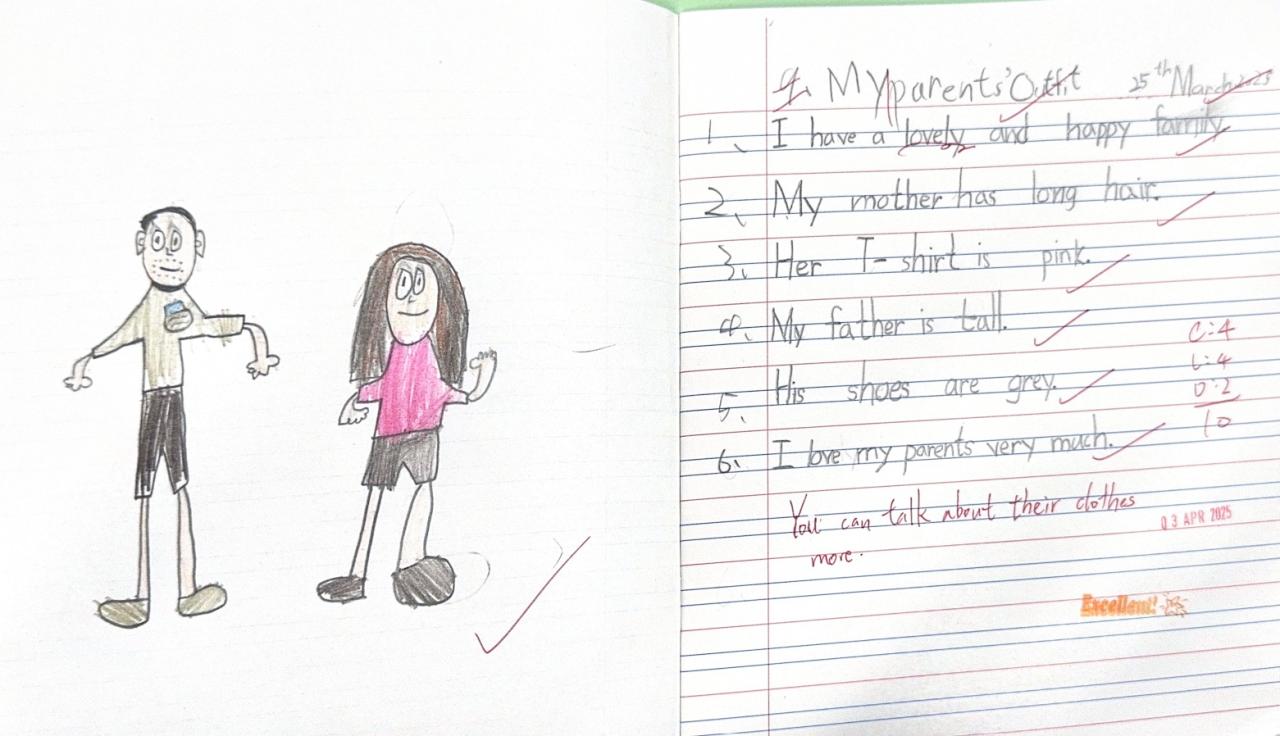 4. My parents' Outfit 25th March 2025
1、 I have a lovely and happy family.
2、 My mother has long hair.
3、 Her T-shirt is pink.
4、 My father is tall.
5、 His shoes are grey.
6、 I love my parents very much.
C:4
L:4
O:2
10
You can talk about their clothes
more.
03 APR 2025
Excellent!